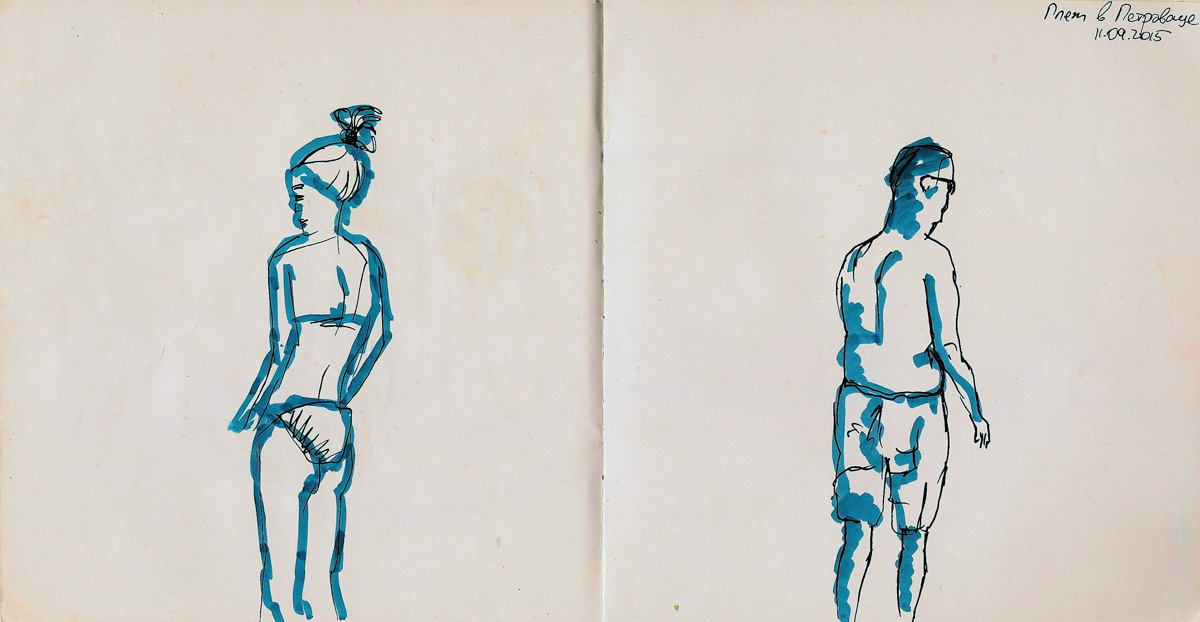 Пляж в Петроваце
11.09.2015